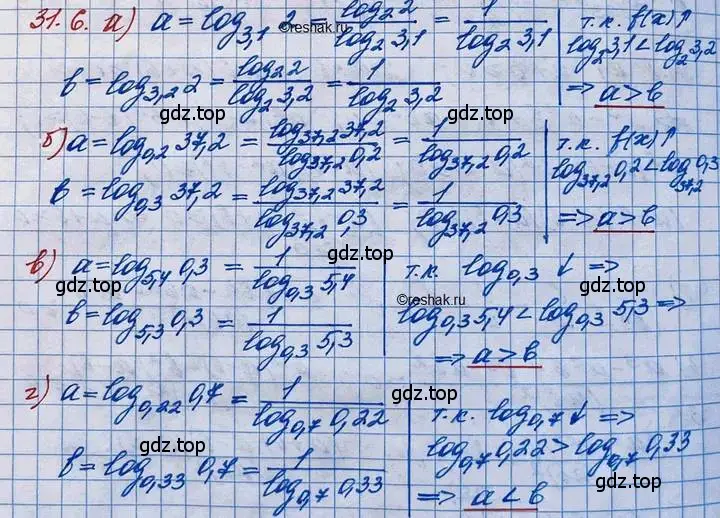 31.6. а) a = log_{3,1} 2 = \frac{log_2 2}{log_2 3,1} = \frac{1}{log_2 3,1} | т.к. f(x)↑
log_2 3,1 < log_2 3,2
b = log_{3,2} 2 = \frac{log_2 2}{log_2 3,2} = \frac{1}{log_2 3,2} | => a > b
©reshak.ru
gdz.top gdz.top
б) a = log_{0,2} 37,2 = \frac{log_{37,2} 37,2}{log_{37,2} 0,2} = \frac{1}{log_{37,2} 0,2} | т.к. f(x)↑
log_{37,2} 0,2 < log_{37,2} 0,3
b = log_{0,3} 37,2 = \frac{log_{37,2} 37,2}{log_{37,2} 0,3} = \frac{1}{log_{37,2} 0,3} | => a > b
gdz.top gdz.top
в) a = log_{5,4} 0,3 = \frac{1}{log_{0,3} 5,4} | т.к. log_{0,3} ↓ =>
gdz.top gdz.top
©reshak.ru
b = log_{5,3} 0,3 = \frac{1}{log_{0,3} 5,3} | log_{0,3} 5,4 < log_{0,3} 5,3 =>
=> a > b
gdz.top gdz.top
г) a = log_{0,22} 0,7 = \frac{1}{log_{0,7} 0,22} | т.к. log_{0,7} ↓ =>
log_{0,7} 0,22 > log_{0,7} 0,33
gdz.top gdz.top
b = log_{0,33} 0,7 = \frac{1}{log_{0,7} 0,33} | => a < b
gdz.top gdz.top